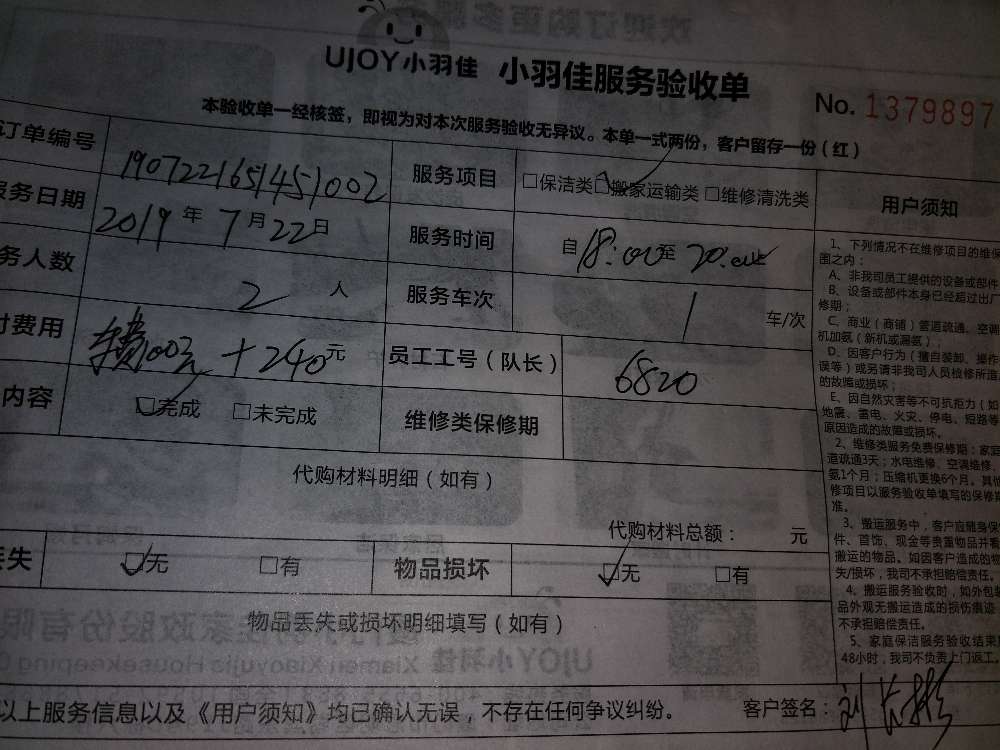 UJOY小羽佳 小羽佳服务验收单
No. 1379897
本验收单一经核签，即视为对本次服务验收无异议。本单一式两份，客户留存一份（红）
订单编号 1907221651451002 服务项目 □保洁类 □搬家运输类 □维修清洗类
服务日期 2019年7月22日 服务时间 自18:00至20:00止
务人数 2人 服务车次 1 车/次
付费用 00元+240元 员工工号（队长） 6820
内容 □完成 □未完成 维修类保修期
代购材料明细（如有）
代购材料总额： 元
丢失 □无 □有 物品损坏 □无 □有
物品丢失或损坏明细填写（如有）
以上服务信息以及《用户须知》均已确认无误，不存在任何争议纠纷。 客户签名：刘
用户须知
1、下列情况不在维修项目的维保
围之内：
A、非我司员工提供的设备或部件
B、设备或部件本身已经超过出厂
修期；
C、商业（商铺）管道疏通、空调
机加氨（新机或漏氨）；
D、因客户行为（擅自装卸、操作
误等）或另请非我司人员检修所造
的故障或损坏；
E、因自然灾害等不可抗拒力（如
地震、雷电、火灾、停电、短路等
原因造成的故障或损坏。
2、维修类服务免费保修期：家庭
道疏通3天；水电维修、空调维修、
氨1个月；压缩机更换6个月。其他
修项目以服务验收单填写的保修期
准。
3、搬运服务中，客户应随身保
件、首饰、现金等贵重物品并看
搬运的物品。如因客户造成的物
失/损坏，我司不承担赔偿责任。
4、搬运服务验收时，如外包装
品外观无搬运造成的损伤痕迹
不承担赔偿责任。
5、家庭保洁服务验收结束
48小时，我司不负责上门返工。